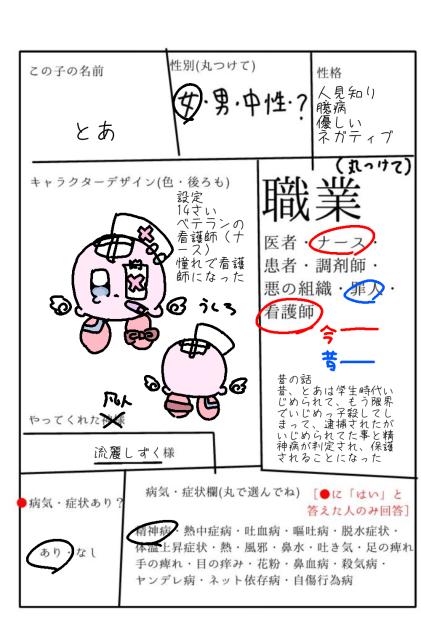 この子の名前
とあ
性別(丸つけて)
女・男・中性・?
性格
人見知り
臆病
優しい
ネガティブ
キャラクターデザイン(色・後ろも)
設定
14さい
ベテランの
看護師(ナ
ース)
憧れで看護
師になった
うしろ
(丸つけて)
職業
医者・ナース・
患者・調剤師・
悪の組織・罪人・
看護師
今ー
昔ー
昔の話
昔、とあは学生時代い
じめられて、もう限界
でいじめっ子殺してし
まって、逮捕されたが
いじめられてた事と精
神病が判定され、保護
される事になった
やってくれた神様
流麗しずく様
●病気・症状あり?
あり・なし
病気・症状欄(丸で選んでね)
[●に「はい」と
答えた人のみ回答]
精神病・熱中症病・吐血病・嘔吐病・脱水症状・
体温上昇症状・熱・風邪・鼻水・吐き気・足の痺れ
手の痺れ・目の痒み・花粉・鼻血病・殺気病・
ヤンデレ病・ネット依存病・自傷行為病